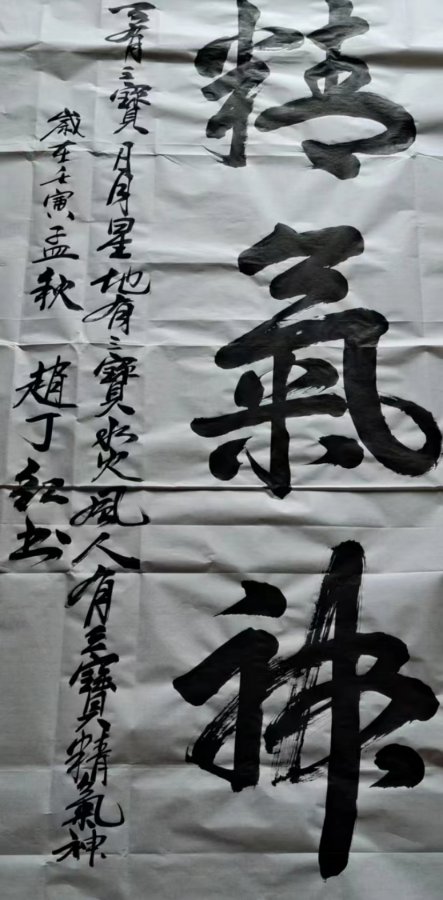 精氣神
天有三寶日月星地有三寶水火風人有三寶精氣神
歲在壬寅孟秋 趙丁紅书